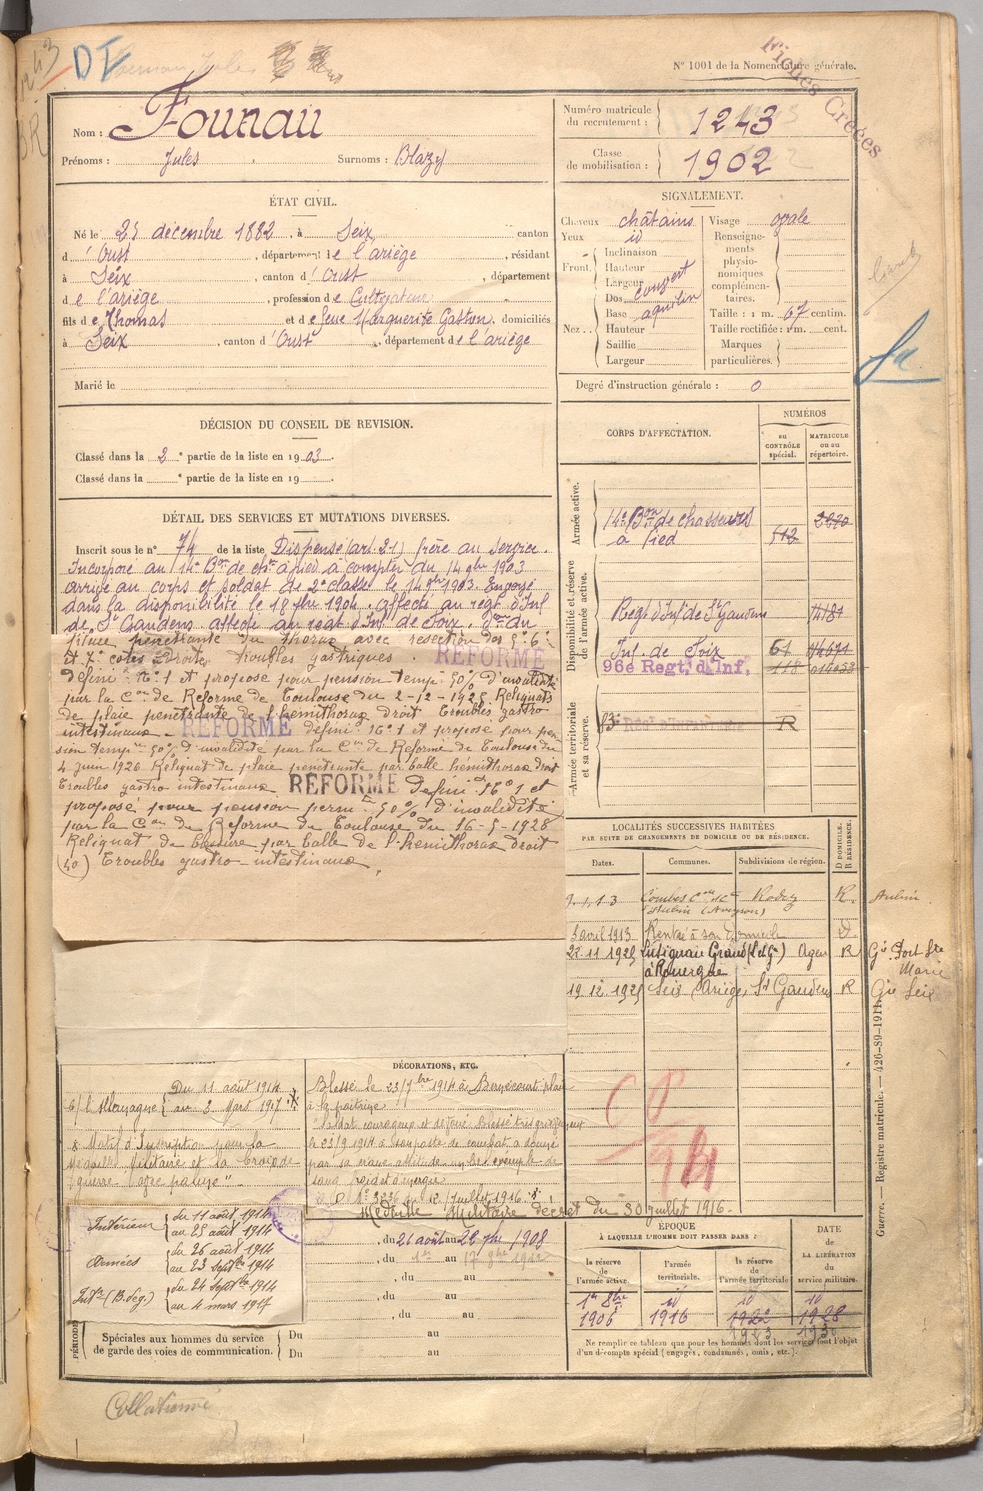 1243
DI
N° 1001 de la Nomenclature générale.
Fiches Créées
Nom : Founau
Prénoms : Jules Surnoms : Blazy
Numéro matricule du recrutement : 1243
Classe de mobilisation : 1902
ÉTAT CIVIL.
Né le 25 décembre 1882, à Seix, canton
d'Oust, département de l'ariège, résidant
à Seix, canton d'Oust, département
de l'ariège, profession de Cultivateur
fils de Thomas et de feue Marguerite Gaston, domiciliés
à Seix, canton d'Oust, département de l'ariège
Marié le
SIGNALEMENT.
Cheveux châtains
Yeux id
Front Inclinaison
Hauteur
Largeur couvert
Nez Dos
Base aquilin
Hauteur
Saillie
Largeur
Visage ovale
Renseignements physionomiques complémentaires.
Taille : 1 m. 67 centim.
Taille rectifiée : 1 m. cent.
Marques particulières.
Degré d'instruction générale : 0
DÉCISION DU CONSEIL DE REVISION.
Classé dans la 2e partie de la liste en 1903
Classé dans la e partie de la liste en 19
DÉTAIL DES SERVICES ET MUTATIONS DIVERSES.
Inscrit sous le n° 74 de la liste Dispensé (art. 21) frère au service.
Incorporé au 14e Bon de chrs à pied à compter du 14 9bre 1903
arrivé au corps et soldat de 2e classe le 14 9bre 1903. Envoyé
dans la disponibilité le 18 7bre 1904. affecté au régt d'Inf
de St Gaudens affecté au régt d'Inf de Foix.
pénétrante du thorax avec resection des 5e 6e
et 7e cotes droite, troubles gastriques. REFORME
définé N° 1 et proposé pour pension temp. 50% d'invalidité
par la Con de Reforme de Toulouse du 2-12-1925 Reliquats
de plaie pénétrante de l'hemithorax droit troubles gastro-
intestinaux. REFORME définé N° 1 et proposé pour pen
sion tempre 50% d'invalidité par la Con de Reforme de Toulouse du
4 juin 1926 Reliquat de plaie pénétrante par balle hémithorax droit
troubles gastro intestinaux REFORME Défini N° 1 et
proposé pour pension perm 50% d'invalidité
par la Con de Reforme de Toulouse du 16-5-1928
Reliquat de blessure par balle de l'hemithorax droit
(40) troubles gastro-intestinaux.
CORPS D'AFFECTATION.
NUMÉROS
au contrôle spécial.
matricule ou au répertoire.
Armée active.
14e Bon de chasseurs à Pied 512
Disponibilité et réserve de l'armée active.
Régt d'Inf de St Gaudens
Inf. de Foix 61
96e Régt d'Inf. 118
Armée territoriale et sa réserve.
R
LOCALITÉS SUCCESSIVES HABITÉES
PAR SUITE DE CHANGEMENTS DE DOMICILE OU DE RÉSIDENCE.
Dates. Communes. Subdivisions de région. D DOMICILE. R RÉSIDENCE.
Combes Aubin (Aveyron) Rodez R. Aubin
3 avril 1913 Rentré à son domicile D.
22.11 1925 Lusignan Grand (L et G) Agen R Gie Port Ste Marie
19.12.1925 Seix (Ariège) St Gaudens R Gie Seix
Du 11 août 1914
c/ l'Allemagne au 3 Mars 1917
Motif d'Inscription pour la
Médaille Militaire et la Croix de
guerre avec palme"
Intérieur du 11 août 1914
au 25 août 1914
Armées du 26 août 1914
au 23 septbre 1914
Intr (B. dég.) du 24 septbre 1914
au 4 mars 1917
DÉCORATIONS, ETC.
Blessé le 23/7bre 1914 à Bernécourt plaie
à la poitrine
"Soldat courageux et dévoué. Blessé très grièvement
le 23/9 1914 à son poste de combat a donné
par sa crâne attitude un bel exemple de
sang froid et d'énergie
Médaille Militaire décret du 30 juillet 1916.
, du 26 août au 22 7bre 1908
, du 1er au 17 9bre 1912
, du au
, du au
, du au
Spéciales aux hommes du service
de garde des voies de communication.
Du au
Du au
ÉPOQUE
À LAQUELLE L'HOMME DOIT PASSER DANS :
la réserve de l'armée active. l'armée territoriale. la réserve de l'armée territoriale
DATE DE LA LIBÉRATION du service militaire.
1er 8bre 1906 id 1916 id 1922 id 1928
1923 1930
Ne remplir ce tableau que pour les hommes dont les services font l'objet
d'un décompte spécial (engagés, condamnés, omis, etc.).
Guerre. — Registre matricule. — 426-89-1911.
Collationné